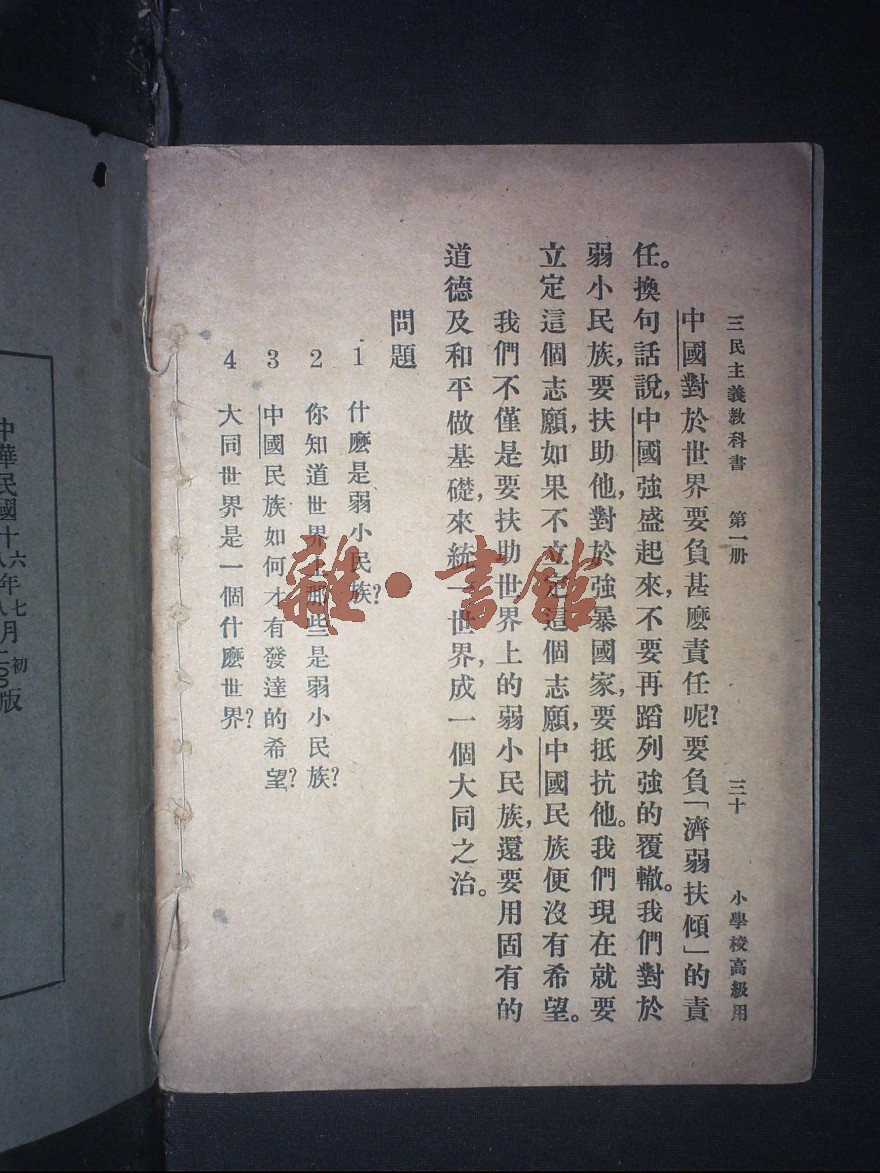 三民主義教科書 第一册 三十 小學校高級用
中國對於世界要負甚麼責任呢?要負「濟弱扶傾」的責
任。換句話說,中國強盛起來,不要再蹈列強的覆轍。我們對於
弱小民族,要扶助他,對於強暴國家,要抵抗他。我們現在就要
立定這個志願,如果不立定這個志願,中國民族便沒有希望。
我們不僅是要扶助世界上的弱小民族,還要用固有的
道德及和平做基礎,來統一世界,成一個大同之治。
問題
1 什麽是弱小民族?
2 你知道世界上那些是弱小民族?
3 中國民族如何才有發達的希望?
4 大同世界是一個什麽世界?
雜·書館
中華民國十六年七月初版